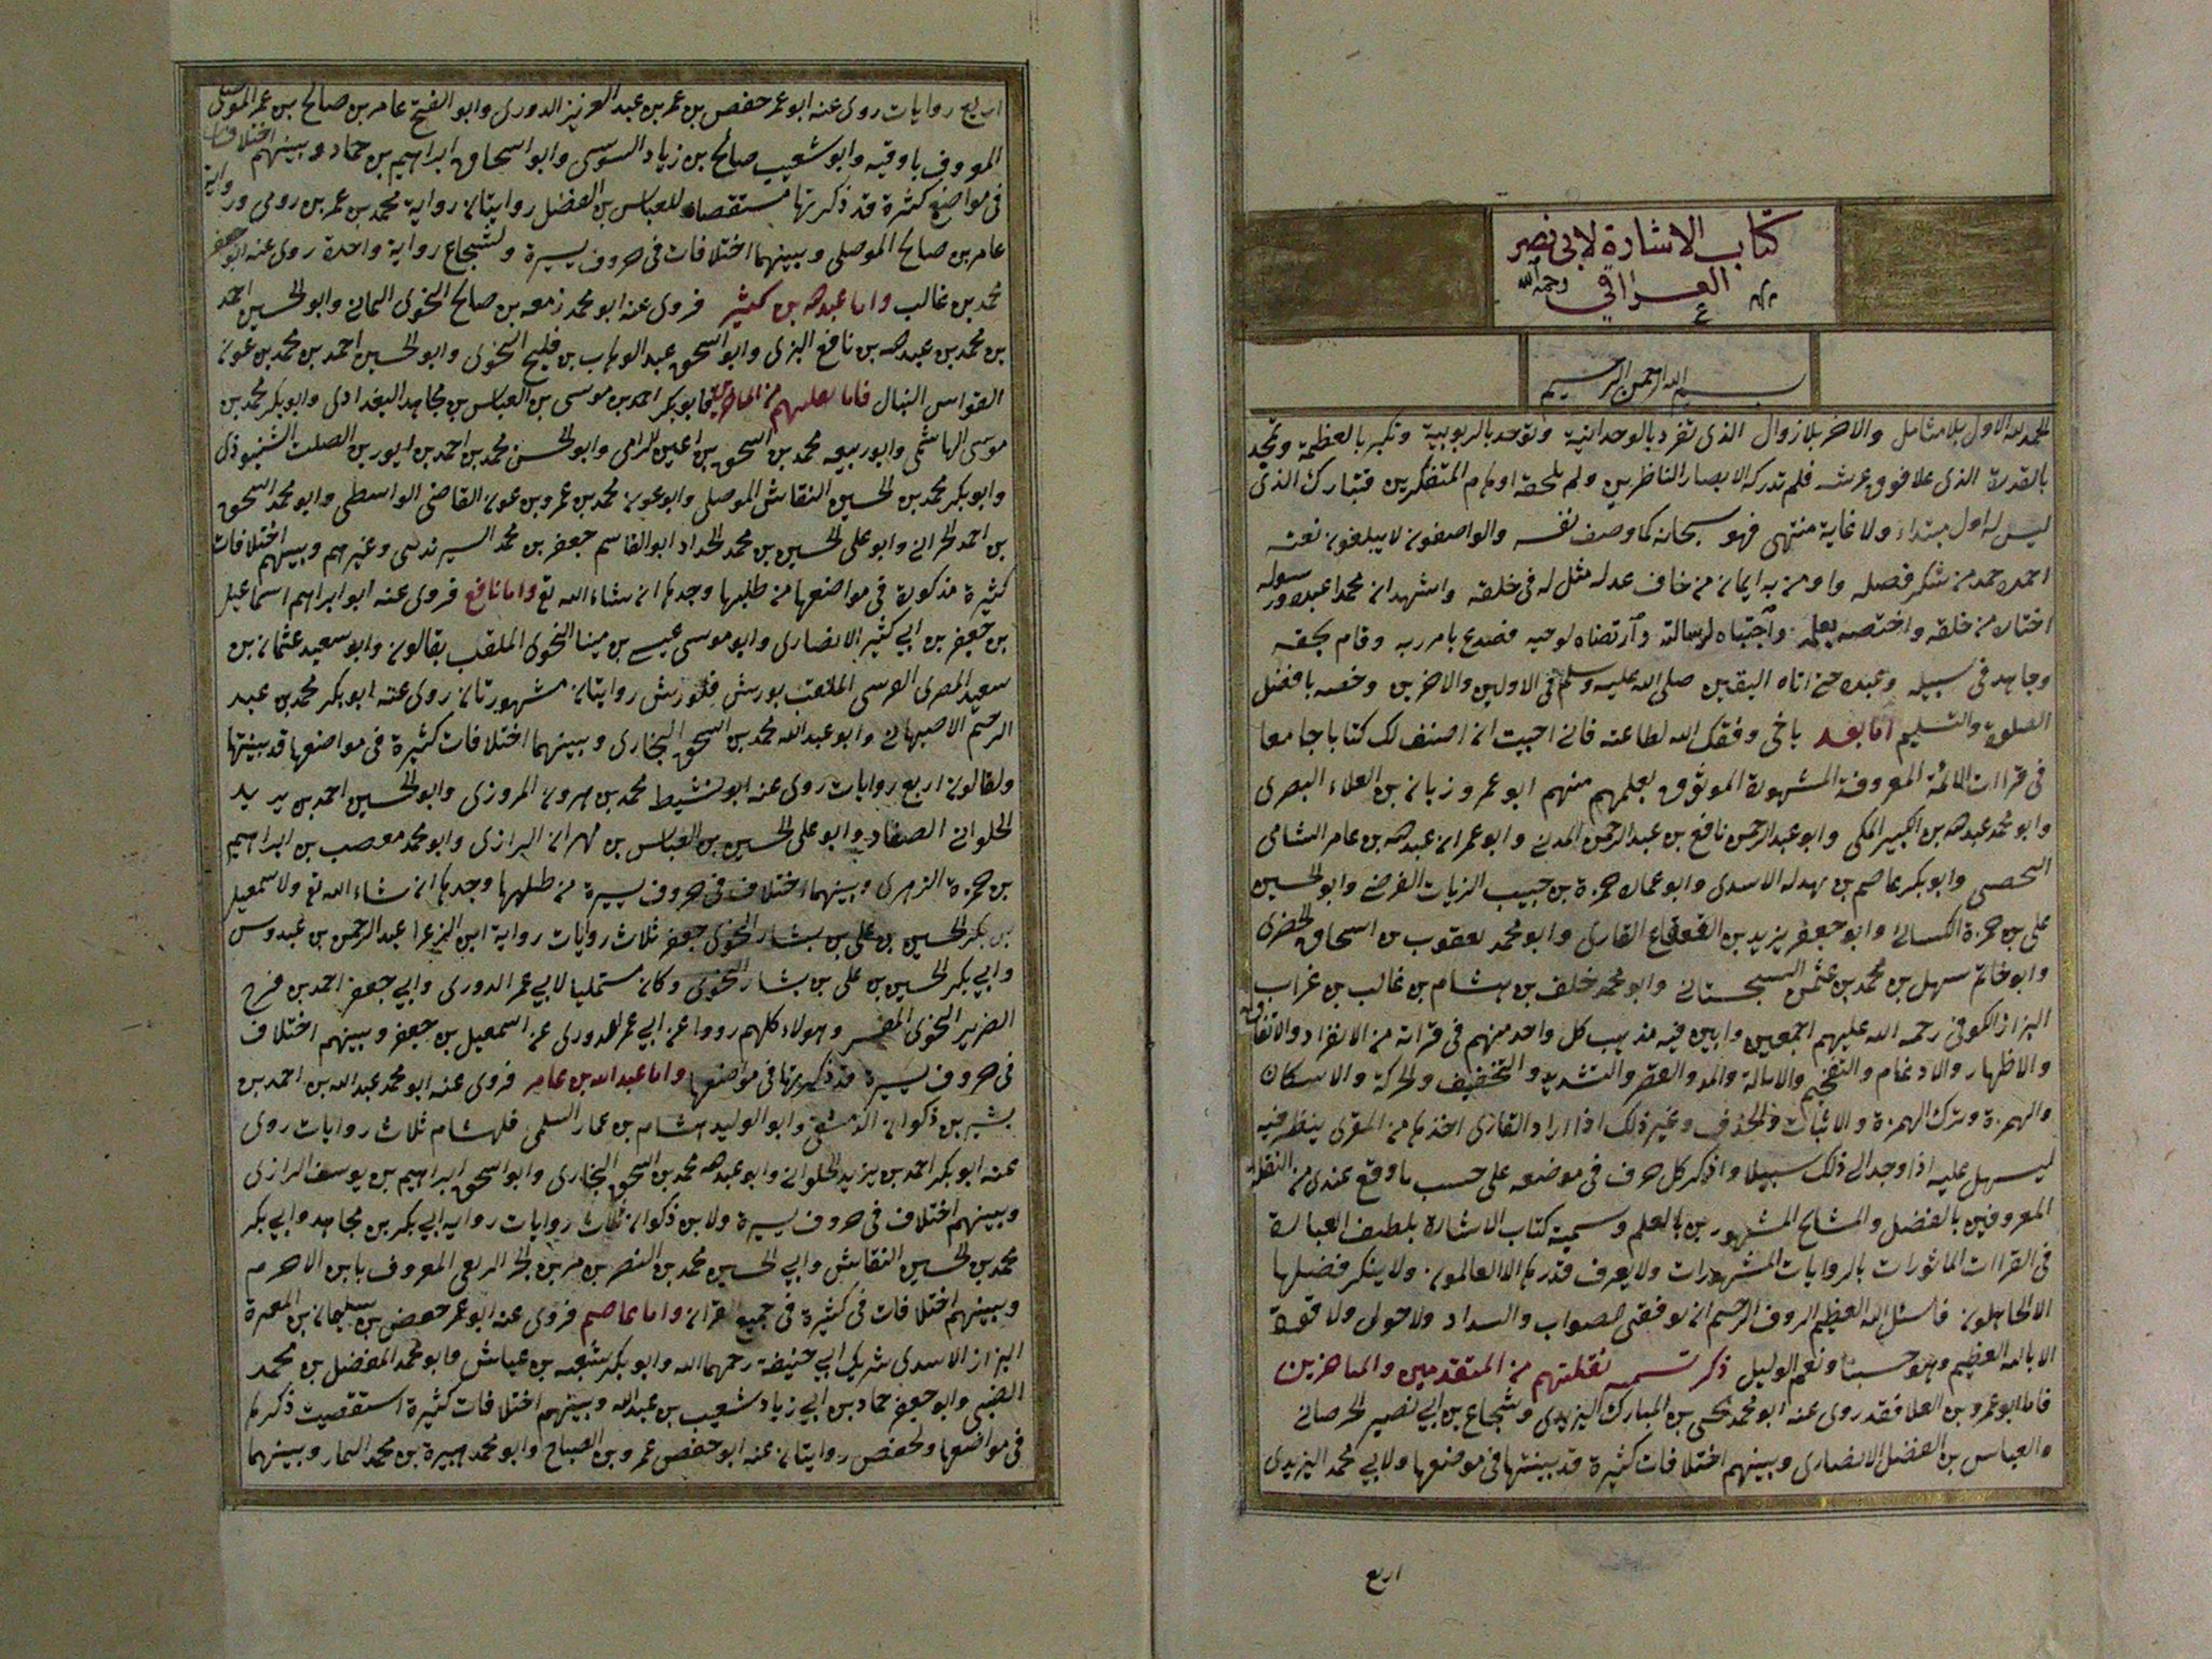 كتاب الاشارة لابي نصر
العراقي رحمه الله
بسم الله الرحمن الرحيم
الحمد لله الاول بلا مثال والاخر بلا زوال الذى تفرد بالوحدانية وتوحد بالربوبية وتكبر بالعظمة وتمجد
بالقدرة الذى علا فوق عرشه فلم تدركه الابصار الناظرين ولم يلحقه اوهام المتفكرين فتبارك الذى
ليس له اول مبتداء ولا غاية منتهى فهو سبحانه كما وصف نفسه والواصفون لا يبلغون نعته
احمده حمد من شكر فضله واومن به ايمان من خاف عدله مثل له فى خلقه واشهد ان محمدا عبده ورسوله
اختاره من خلقه واختصه بعلمه واجتباه لرسالته وارتضاه لوحيه فصدع بامر ربه وقام بحقه
وجاهد فى سبيله وعبده حتى اتاه اليقين صلى الله عليه وسلم فى الاولين والاخرين وخصه بافضل
الصلوة والتسليم اما بعد ياخى وفقك الله لطاعته فانى احببت ان اصنف لك كتابا جامعا
فى قراات الائمة المعروفة المشهورة الموثوق بعلمهم منهم ابو عمرو زبان بن العلاء البصرى
وابو محمد عبد الله بن الكبير المكى وابو عبد الرحمن نافع بن عبد الرحمن المدنى وابو عمران عبد الله بن عامر الشامى
اليحصبى وابو بكر عاصم بن بهدله الاسدى وابو عماره حمزة بن حبيب الزيات الفرضى وابو الحسين
على بن حمزة الكسائى وابو جعفر يزيد بن القعقاع القارى وابو محمد يعقوب بن اسحاق الحضرى
وابو حاتم سهل بن محمد بن عثمن السجستانى وابو محمد خلف بن هشام بن غالب بن غراب
البزاز الكوفى رحمه الله عليهم اجمعين وابين فيه مذهب كل واحد منهم فى قراته من الانفراد والاتفاق
والاظهار والادغام والتفخيم والامالة والمد والقصر والتشديد والتخفيف والحركة والاسكان
والهمزة وترك الهمزة والاثبات والحذف وغير ذلك اذا اراد القارى اخذها من المقرى ينظر فيه
ليسهل عليه اذا وجد الى ذلك سبيلا واذكر كل حرف فى موضعه على حسب ما وقع عندى من النقلة
المعروفين بالفضل والمشايخ المشهورين بالعلم وسميته كتاب الاشارة بلطيف العبارة
فى القراات الماثورات بالروايات المشهورات ولا يعرف قدرها الا العالمون ولا ينكر فضلها
الا الجاهلون فاسئل الله العظيم الروف الرحيم ان يوفقنى للصواب والسداد ولا حول ولا قوة
الا بالله العظيم وهو حسبنا ونعم الوكيل ذكر تسميه نقلتهم من المتقدمين والمتاخرين
فاما ابو عمرو بن العلا فقد روى عنه ابو محمد يحيى بن المبارك اليزيدى وشجاع بن ابى نصير الخراسانى
والعباس بن الفضل الانصارى وبينهم اختلافات كثيرة قد بينتها فى موضعها ولابى محمد اليزيدى
اربع
اربع روايات روى عنه ابو عمر حفص بن عمر بن عبد العزيز الدورى وابو الفتح عامر بن صالح بن عمر الموصلى
المعروف باوقيه وابو شعيب صالح بن زياد السوسى وابو اسحاق ابراهيم بن حماد وبينهم اختلافات
فى مواضع كثرة قد ذكرتها مستقصاه للعباس بن الفضل روايتان رواية محمد بن عمر بن رومى ورواية
عامر بن صالح الموصلى وبينهما اختلافات فى حروف يسيرة ولشجاع رواية واحدة روى عنه ابو جعفر
محمد بن غالب واما عبد الله بن كثير فروى عنه ابو محمد زمعه بن صالح النحوى اليمانى وابو الحسين احمد
بن محمد بن عبد الله بن نافع البزى وابو اسحق عبد الوهاب بن فليح النحوى وابو الحسين احمد بن محمد بن عون
القواس النبال فابو بكر احمد بن موسى بن العباس بن مجاهد البغدادى وابو بكر محمد بن
موسى الهاشمى وابو ربيعه محمد بن اسحق بن اعين الرامى وابو الحسن محمد بن احمد بن ايوب بن الصلت الشنبوذى
وابو بكر محمد بن الحسين النقاش الموصلى وابو عون محمد بن عمرو بن عون القاضى الواسطى وابو محمد اسحق
بن احمد الخزانى وابو على الحسين بن محمد الحداد ابو القاسم جعفر بن محمد السرندسى وغيرهم وبينهم اختلافات
كثيرة مذكورة فى مواضعها من طلبها وجدها ان شاء الله تع واما نافع فروى عنه ابو ابراهيم اسماعيل
بن جعفر بن ابى كثير الانصارى وابو موسى عيسى بن مينا النحوى الملقب بقالون وابو سعيد عثمان بن
سعيد المصرى القرسى الملقب بورش فلورش روايتان مشهورتان روى عنه ابو بكر محمد بن عبد
الرحيم الاصبهانى وابو عبد الله محمد بن اسحق البخارى وبينهما اختلافات كثيرة فى مواضعها قد بينتها
ولقالون اربع روايات روى عنه ابو نشيط محمد بن هرون المروزى وابو الحسين احمد بن يزيد
الحلوانى الصفار وابو على الحسين بن العباس بن مهران الرازى وابو محمد مصعب بن ابراهيم
بن حمزة الزهرى وبينهما اختلاف فى حروف يسيرة من طلبها وجدها ان شاء الله تع ولاسمعيل
بن جعفر ثلاث روايات رواية ابى الزعرا عبد الرحمن بن عبدوس
وابى بكر الحسين بن على بن بشار النحوى وكان مستمليا لابى عمر الدورى وابى جعفر احمد بن فرح
الضرير النحوى المفسر وهولاء كلهم رووا عن ابى عمر الدورى عن اسمعيل بن جعفر وبينهم اختلاف
فى حروف يسيرة قد ذكرتها فى مواضعها واما عبد الله بن عامر فروى عنه ابو محمد عبد الله بن احمد بن
بشير بن ذكوان الدمشقى وابو الوليد هشام بن عمار السلمى فلهشام ثلاث روايات روى
عنه ابو بكر احمد بن يزيد الحلوانى وابو عبد الله محمد بن اسحق البخارى وابو اسحق ابراهيم بن يوسف الرازى
وبينهم اختلاف فى حروف يسيرة ولابن ذكوان ثلاث روايات رواية ابى بكر بن مجاهد وابى بكر
محمد بن الحسين النقاش وابى الحسين محمد بن النضر بن مر بن الحر الربعى المعروف بابن الاخرم
وبينهم اختلافات فى كثيرة فى جميع القران واما عاصم فروى عنه ابو عمر حفص بن سليمان بن المغيرة
البزاز الاسدى شريك ابى حنيفة رحمهما الله وابو بكر شعبه بن عياش وابو محمد المفضل بن محمد
الضبى وابو جعفر حماد بن ابى زياد شعيب بن عبد الله وبينهم اختلافات كثيرة استقصيت ذكرها
فى مواضعها ولحفص روايتان عنه ابو حفص عمرو بن الصباح وابو محمد هبيرة بن محمد التمار وبينهما